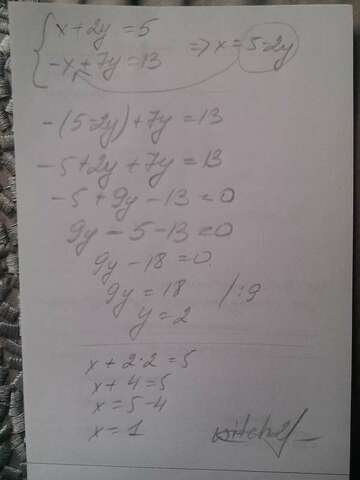 x + 2y = 5
-x + 7y = 13 => x = 5-2y
-(5-2y) + 7y = 13
-5 + 2y + 7y = 13
-5 + 9y - 13 = 0
9y - 5 - 13 = 0
9y - 18 = 0
9y = 18 /:9
y = 2
x + 2·2 = 5
x + 4 = 5
x = 5-4
x = 1